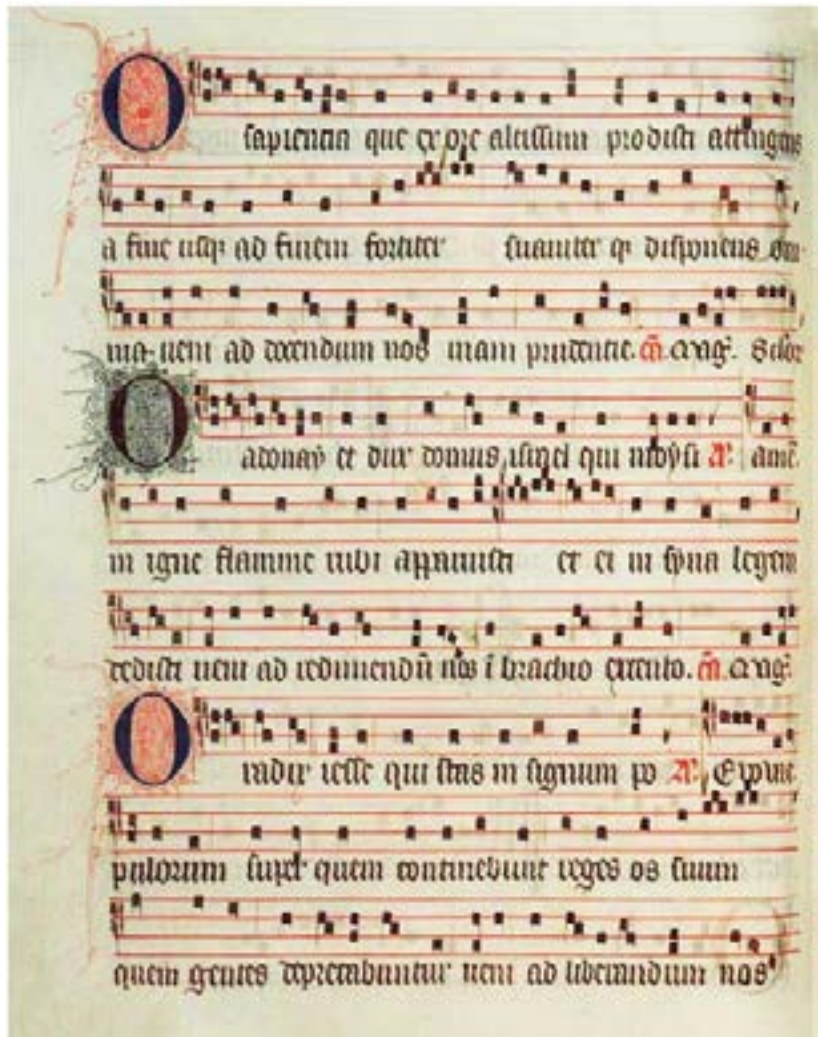 O sapiencia que ex ore altissimi prodisti attingens
a fine usqꝫ ad finem fortiter suauiter qꝫ disponens om
nia ueni ad docendum nos uiam prudentie.
O adonay et dux domus isrl qui moysi
in igne flamme rubi apparuisti et ei in syna legem
dedisti ueni ad redimendū nos ī brachio extento.
O radix iesse qui stas in signum po
pulorum super quem continebunt reges os suum
quem gentes deprecabuntur ueni ad liberandum nos